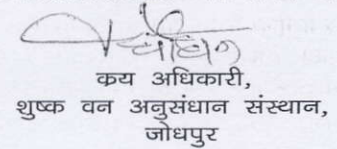 क्रय अधिकारी,
शुष्क वन अनुसंधान संस्थान,
जोधपुर